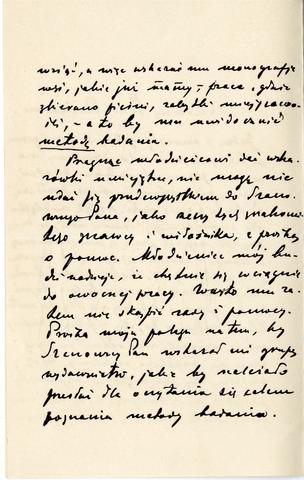 wziąć, a więc wskazać mu monografje
wsi, jakie już mamy, – prace, gdzie
zbierano pieśni, zabytki miejscowo-
ści, – a to by mu uwidocznić
metodę badania.
Pragnąc młodzieńcowi dać wska-
zówki umiejętne, nie mogę nie
udać się przedewszystkiem do Szano-
wnego Pana, jako znakomi-
tego znawcy i miłośnika, z prośbą
o pomoc. Młodzieniec mój bu-
dzi nadzieję, że chętnie się wciągnie
do owocnej pracy. Warto mu za-
tem nie skąpić rady i pomocy.
Prośba moja polega na tem, by
Szanowny Pan wskazał mi grupę
wydawnictw, jakie by należało
przesłać dla oczytania się celem
poznania metody badania.